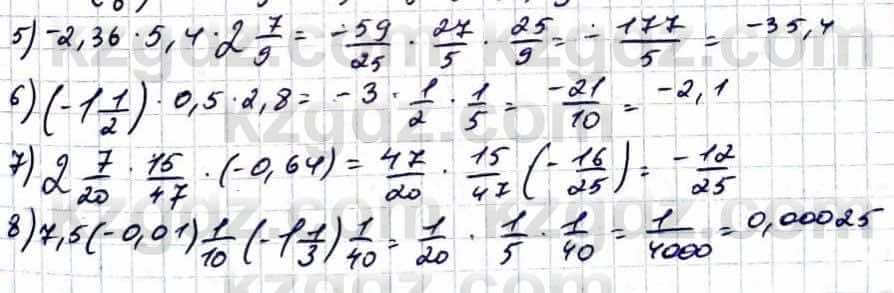 5) -2,36 · 5,4 · 2 7/9 = -59/25 · 27/5 · 25/9 = -177/5 = -35,4
6) (-1 1/2) · 0,5 · 2,8 = -3 · 1/2 · 1/5 = -21/10 = -2,1
7) 2 7/20 · 15/47 · (-0,64) = 47/20 · 15/47 (-16/25) = -12/25
8) 7,5 (-0,01) 1/10 (-1 1/3) 1/40 = 1/20 · 1/5 · 1/40 = 1/4000 = 0,00025